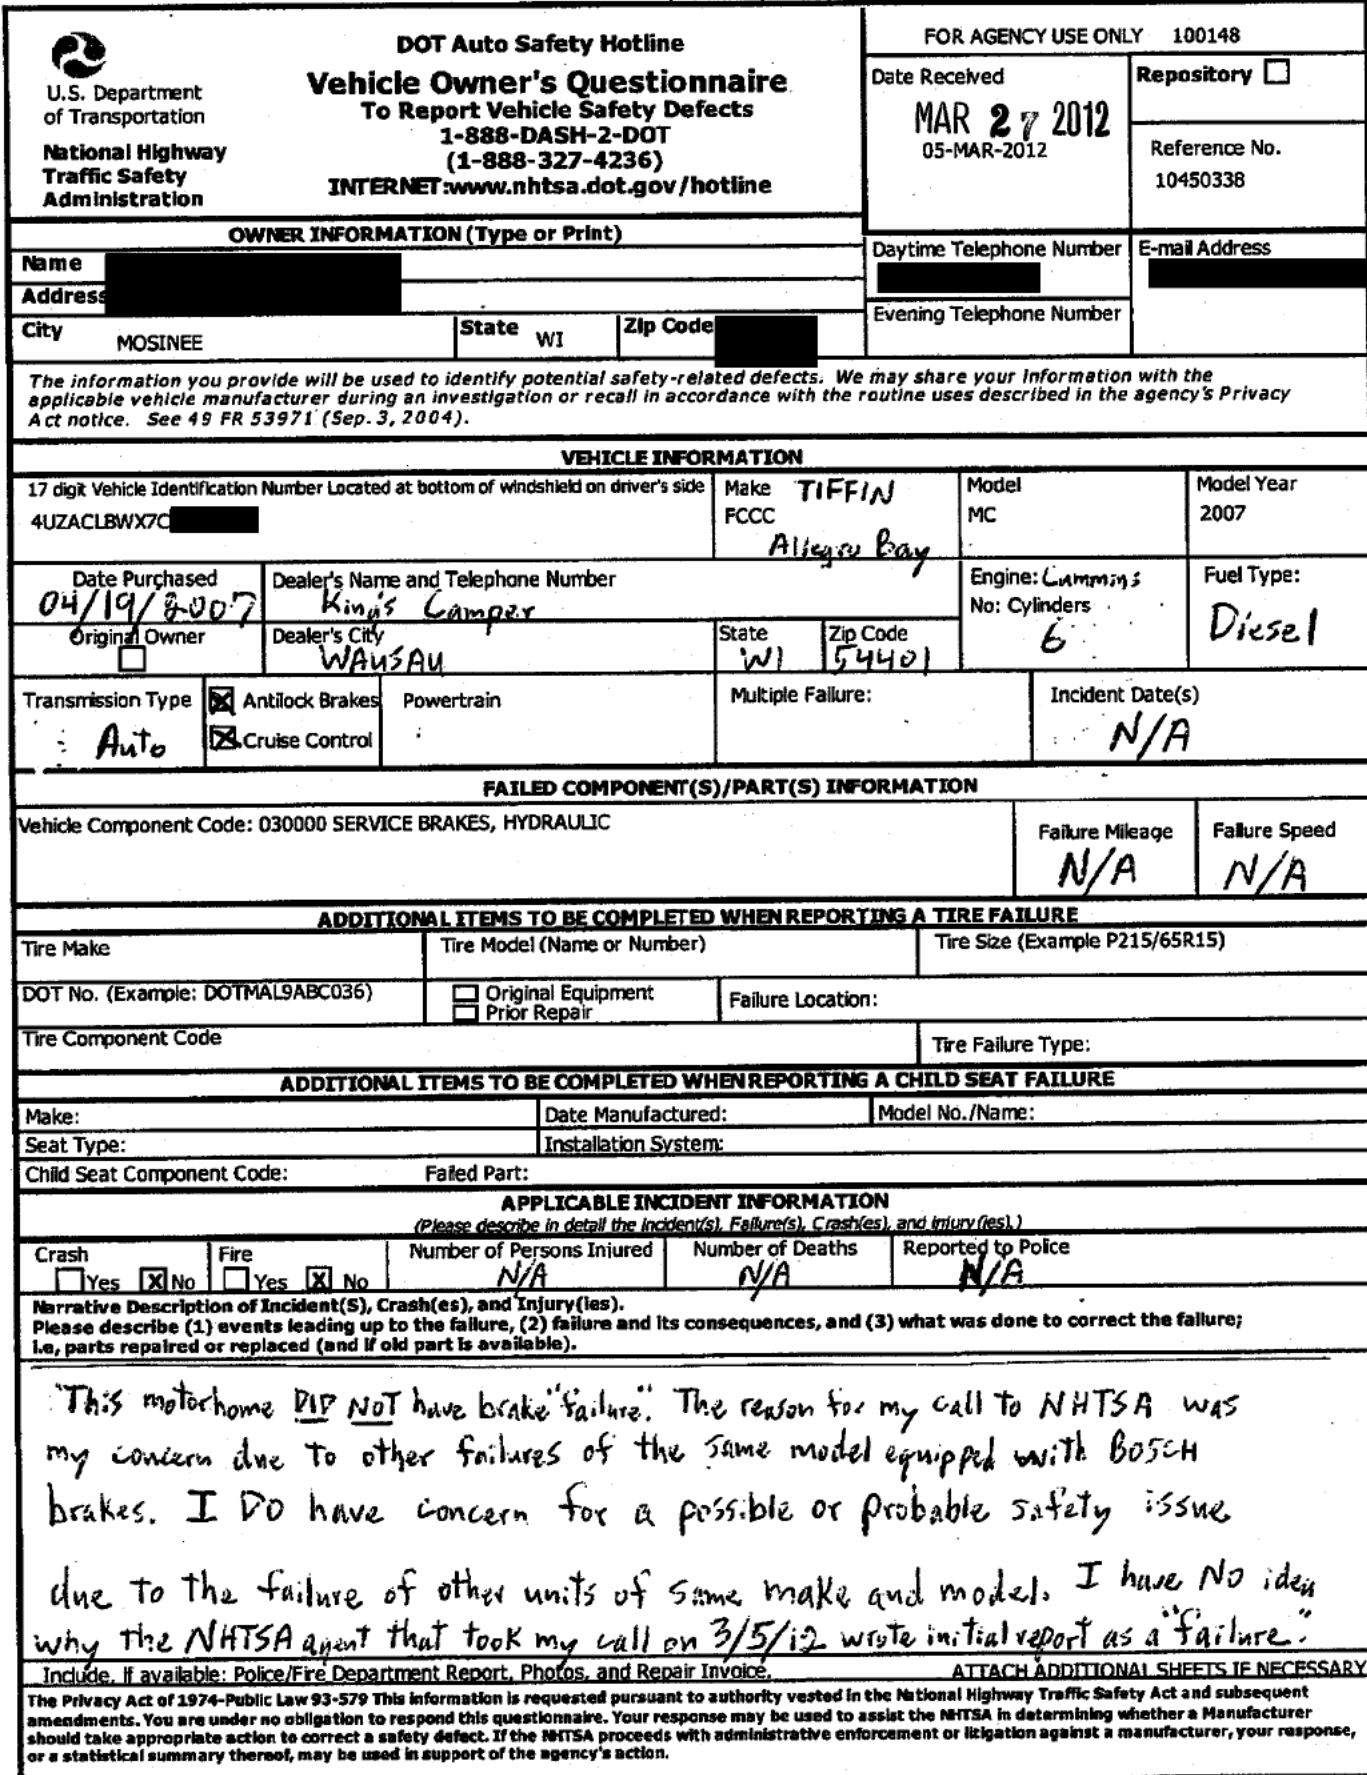 DOT Auto Safety Hotline
Vehicle Owner's Questionnaire
To Report Vehicle Safety Defects
1-888-DASH-2-DOT
(1-888-327-4236)
INTERNET:www.nhtsa.dot.gov/hotline
U.S. Department
of Transportation
National Highway
Traffic Safety
Administration
FOR AGENCY USE ONLY 100148
Date Received
MAR 27 2012
05-MAR-2012
Repository
Reference No.
10450338
OWNER INFORMATION (Type or Print)
Name
Address
City MOSINEE State WI Zip Code
Daytime Telephone Number
E-mail Address
Evening Telephone Number
The information you provide will be used to identify potential safety-related defects. We may share your information with the
applicable vehicle manufacturer during an investigation or recall in accordance with the routine uses described in the agency's Privacy
Act notice. See 49 FR 53971 (Sep. 3, 2004).
VEHICLE INFORMATION
17 digit Vehicle Identification Number Located at bottom of windshield on driver's side
4UZACLBWX7C
Make TIFFIN
FCCC
Allegro Bay
Model
MC
Model Year
2007
Date Purchased
04/19/2007
Dealer's Name and Telephone Number
King's Camper
Engine: Cummins
No: Cylinders
6
Fuel Type:
Diesel
Original Owner
Dealer's City
WAUSAU
State
WI
Zip Code
54401
Transmission Type
Auto
X Antilock Brakes
X Cruise Control
Powertrain
Multiple Failure:
Incident Date(s)
N/A
FAILED COMPONENT(S)/PART(S) INFORMATION
Vehicle Component Code: 030000 SERVICE BRAKES, HYDRAULIC
Failure Mileage
N/A
Failure Speed
N/A
ADDITIONAL ITEMS TO BE COMPLETED WHEN REPORTING A TIRE FAILURE
Tire Make
Tire Model (Name or Number)
Tire Size (Example P215/65R15)
DOT No. (Example: DOTMAL9ABC036)
Original Equipment
Prior Repair
Failure Location:
Tire Component Code
Tire Failure Type:
ADDITIONAL ITEMS TO BE COMPLETED WHEN REPORTING A CHILD SEAT FAILURE
Make:
Date Manufactured:
Model No./Name:
Seat Type:
Installation System:
Child Seat Component Code:
Failed Part:
APPLICABLE INCIDENT INFORMATION
(Please describe in detail the incident(s), Failure(s), Crash(es), and injury(ies).)
Crash
Yes X No
Fire
Yes X No
Number of Persons Injured
N/A
Number of Deaths
N/A
Reported to Police
N/A
Narrative Description of Incident(S), Crash(es), and Injury(ies).
Please describe (1) events leading up to the failure, (2) failure and its consequences, and (3) what was done to correct the failure;
i.e, parts repaired or replaced (and if old part is available).
This motorhome DID NOT have brake "failure". The reason for my call to NHTSA was
my concern due to other failures of the same model equipped with BOSCH
brakes. I DO have concern for a possible or probable safety issue
due to the failure of other units of same make and model. I have NO idea
why the NHTSA agent that took my call on 3/5/12 wrote initial report as a "failure".
Include, if available: Police/Fire Department Report, Photos, and Repair Invoice. ATTACH ADDITIONAL SHEETS IF NECESSARY
The Privacy Act of 1974-Public Law 93-579 This information is requested pursuant to authority vested in the National Highway Traffic Safety Act and subsequent
amendments. You are under no obligation to respond this questionnaire. Your response may be used to assist the NHTSA in determining whether a Manufacturer
should take appropriate action to correct a safety defect. If the NHTSA proceeds with administrative enforcement or litigation against a manufacturer, your response,
or a statistical summary thereof, may be used in support of the agency's action.